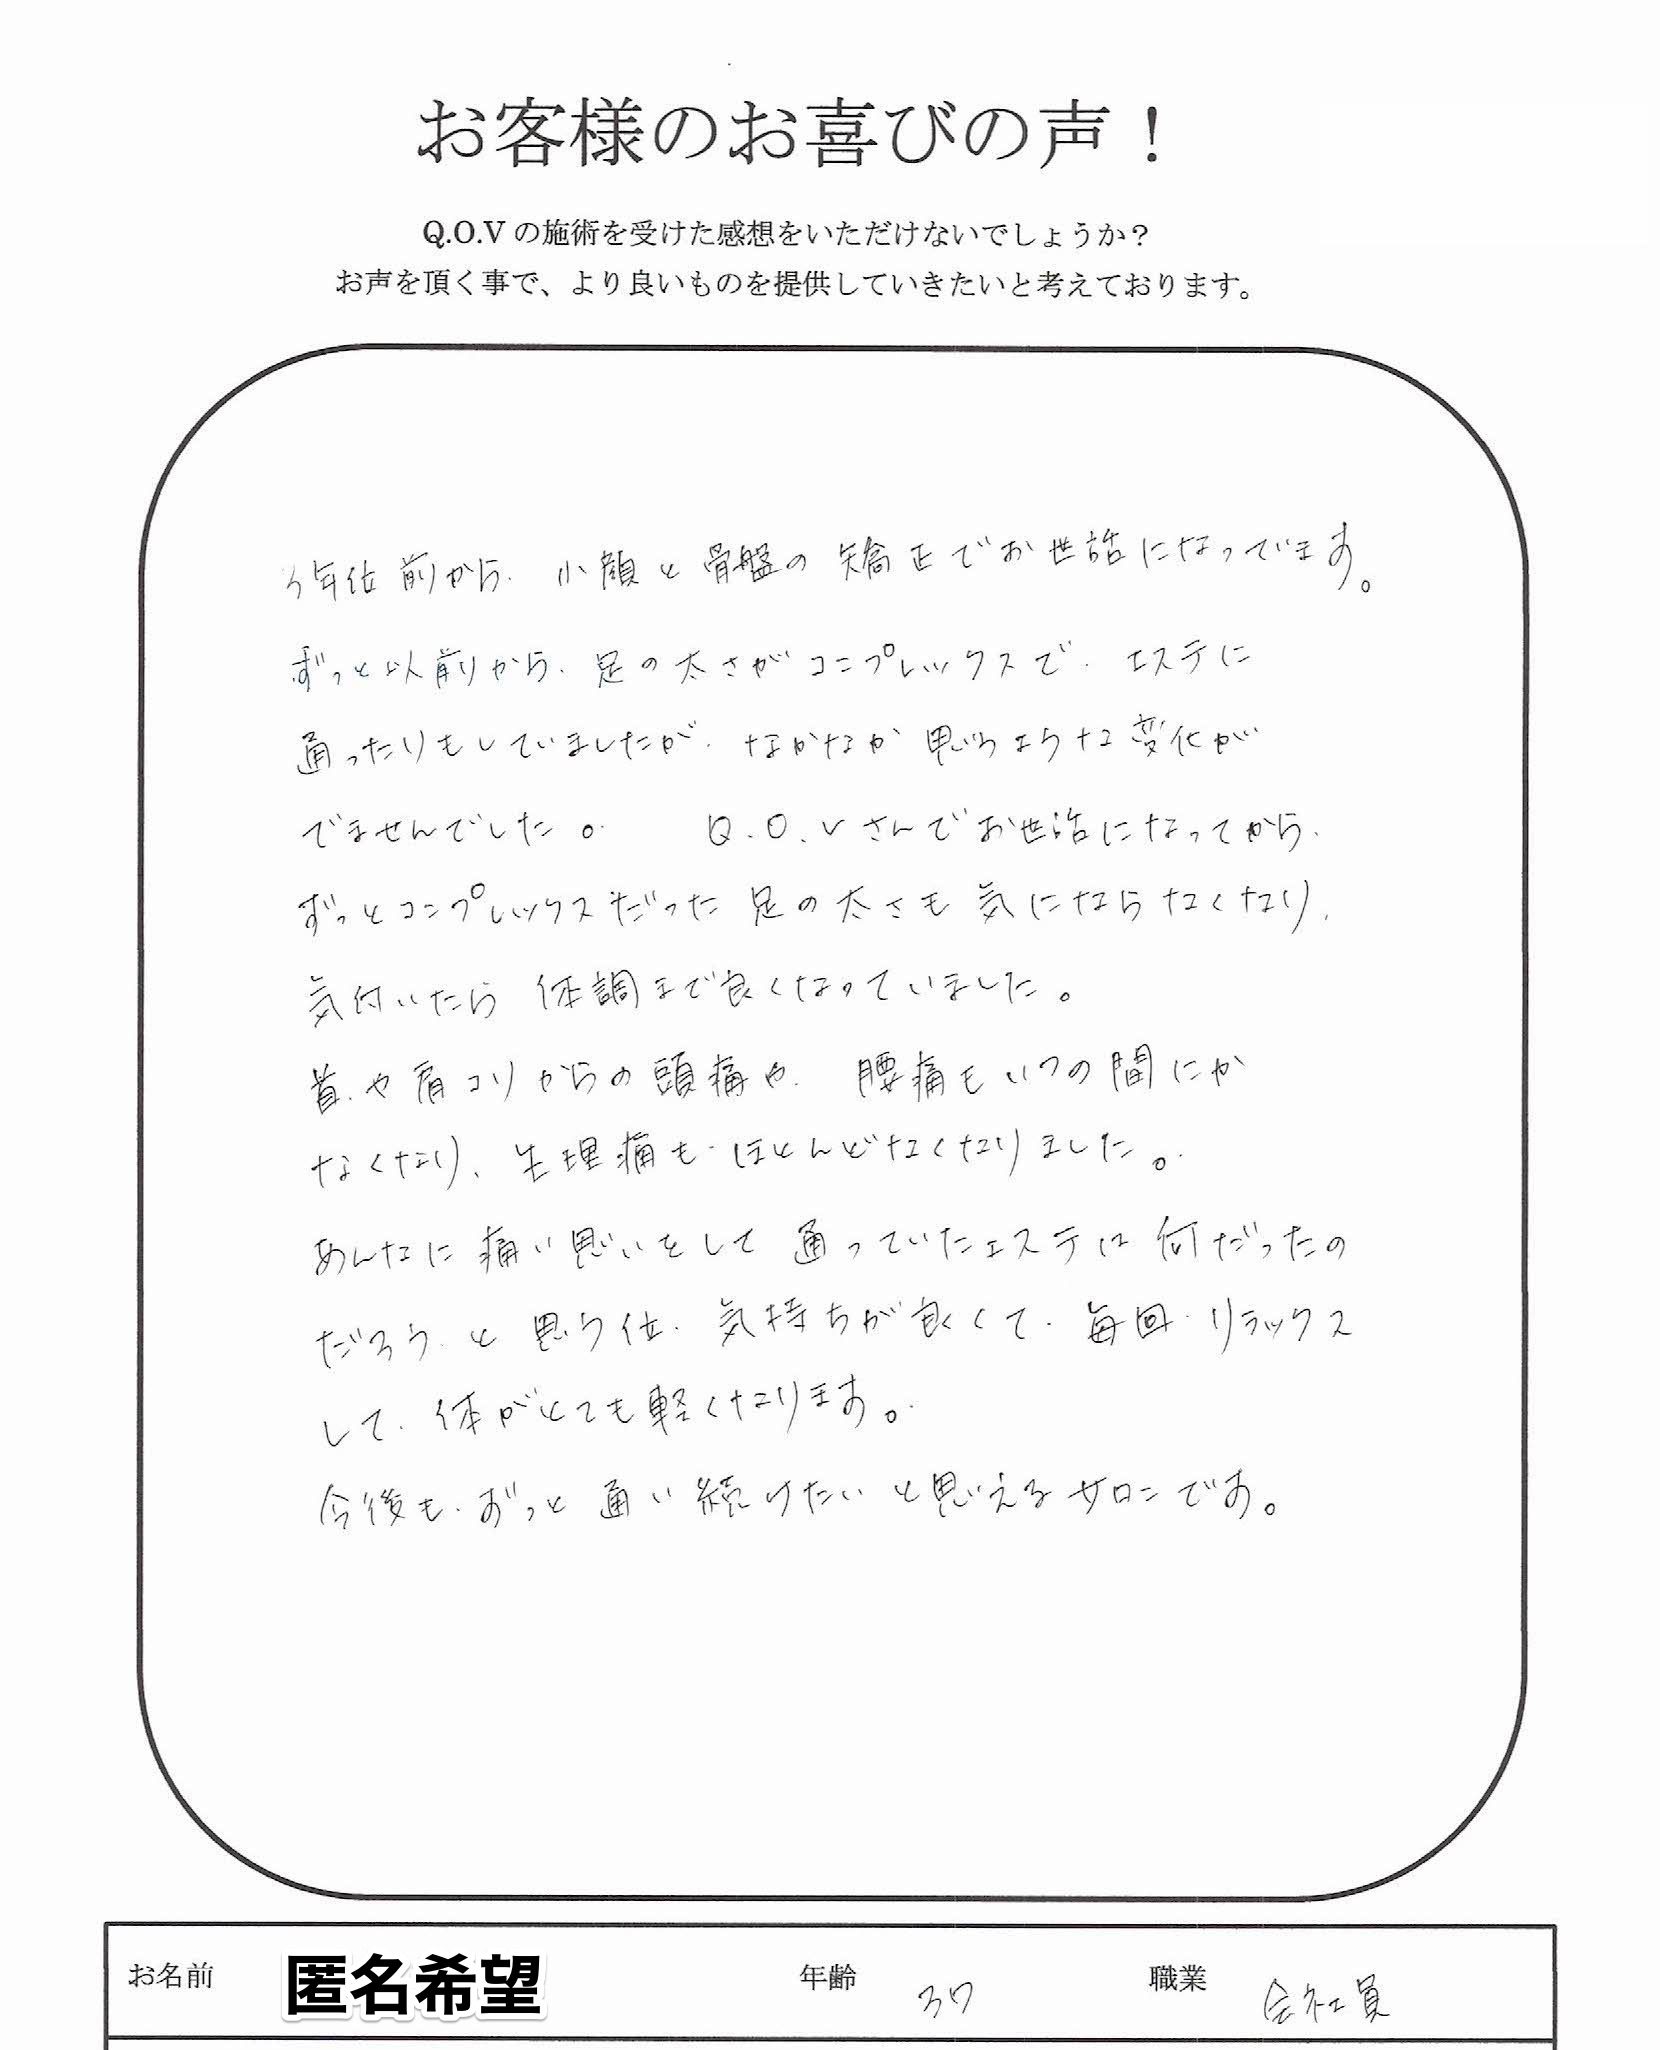 お客様のお喜びの声！
Q.O.Vの施術を受けた感想をいただけないでしょうか？
お声を頂く事で、より良いものを提供していきたいと考えております。
3年位前から、小顔と骨盤の矯正でお世話になってます。
ずっと以前から、足の太さがコンプレックスで、エステに
通ったりもしていましたが、なかなか思うような変化が
でませんでした。 Q.O.Vさんでお世話になってから、
ずっとコンプレックスだった足の太さも気にならなくなり、
気付いたら体調まで良くなっていました。
首や肩コリからの頭痛や、腰痛もいつの間にか
なくなり、生理痛もほとんどなくなりました。
あんなに痛い思いをして通っていたエステは何だったの
だろうと思う位、気持ちが良くて、毎回リラックス
して、体がとても軽くなります。
今後も、ずっと通い続けたいと思えるサロンです。
お名前 匿名希望 年齢 37 職業 会社員